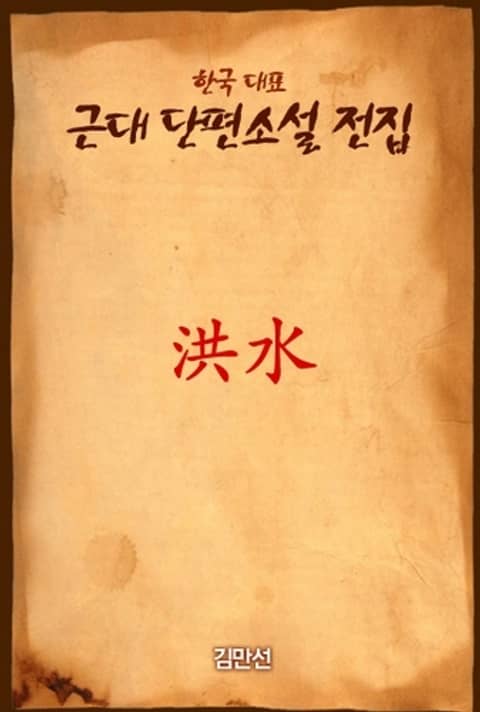 한국 대표
근대 단편소설 전집
洪水
김만선